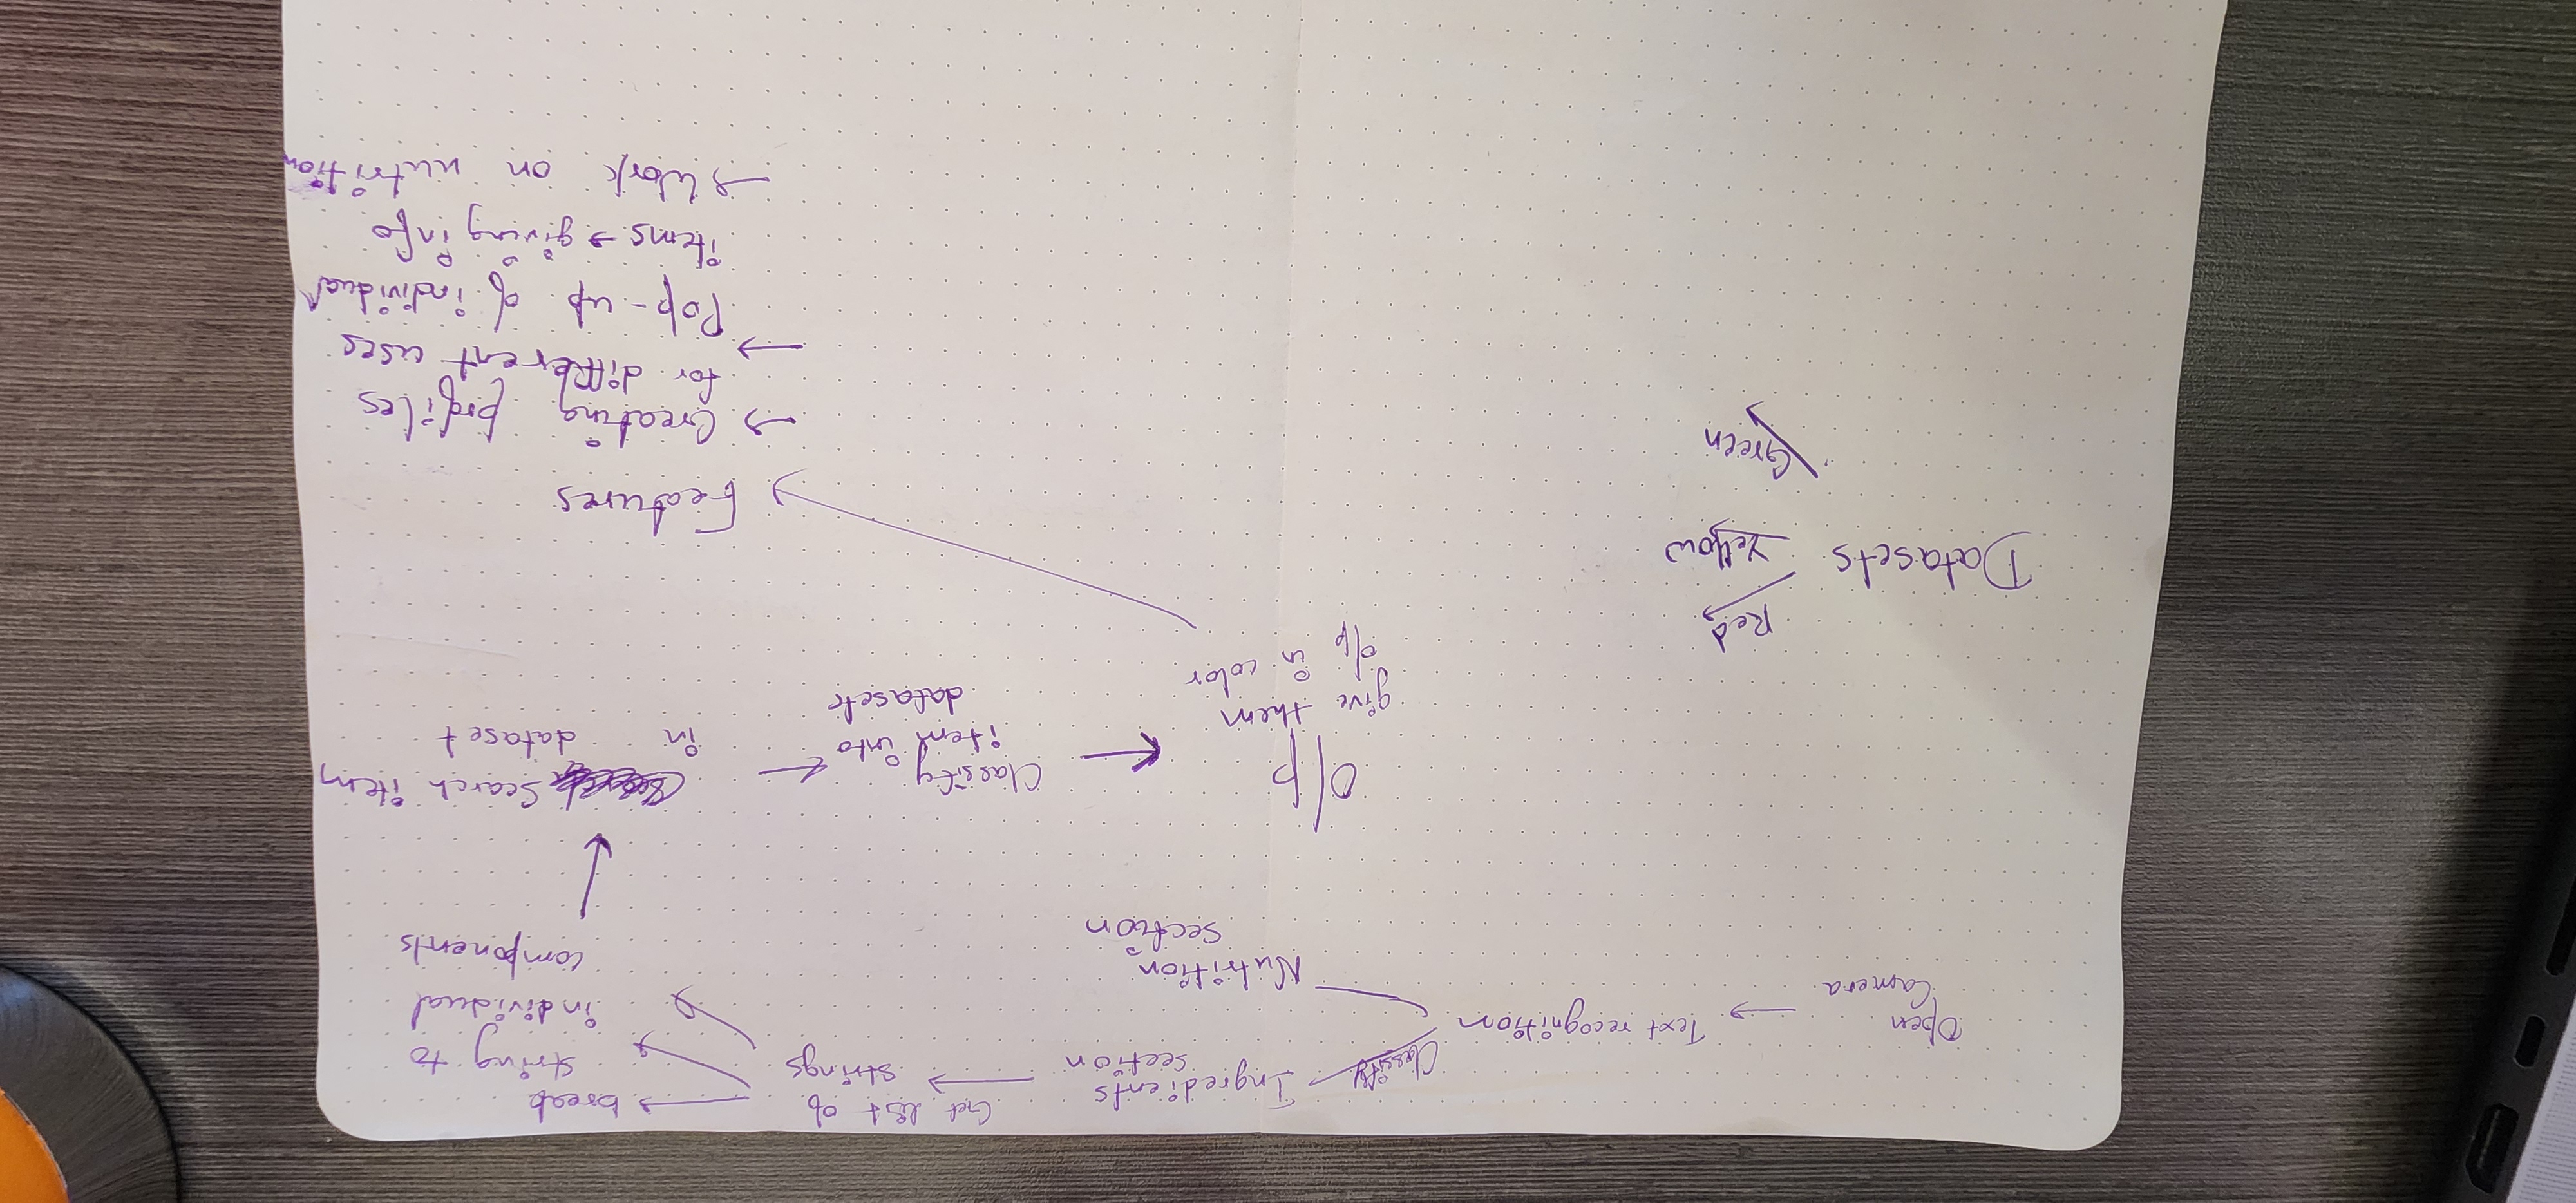 Open
Camera
Text recognition
Classify
Ingredients
section
Nutrition
Section
Get list of
strings
break
string to
individual
components
Search item
in dataset
Classify
item into
datasets
O/p
give them
o/p in color
Datasets
Red
Yellow
Green
Features
Creating profiles
for different uses
Pop-up of individual
items → giving info
Work on nutrition